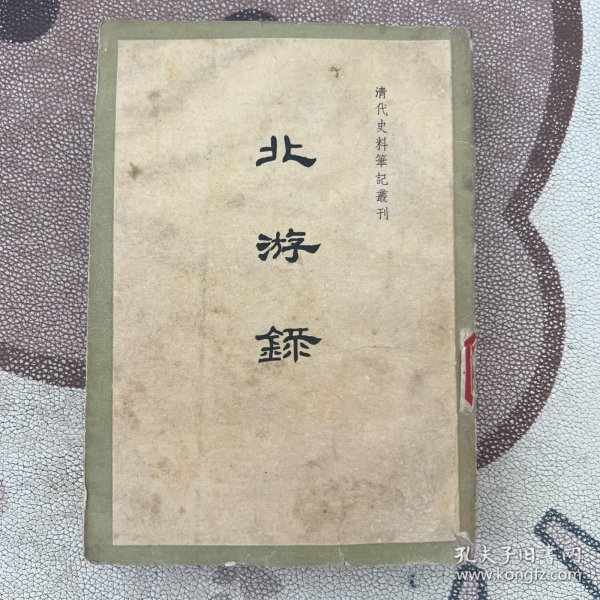 清代史料筆記叢刊
北游錄
孔夫子旧书网
www.kongfz.com